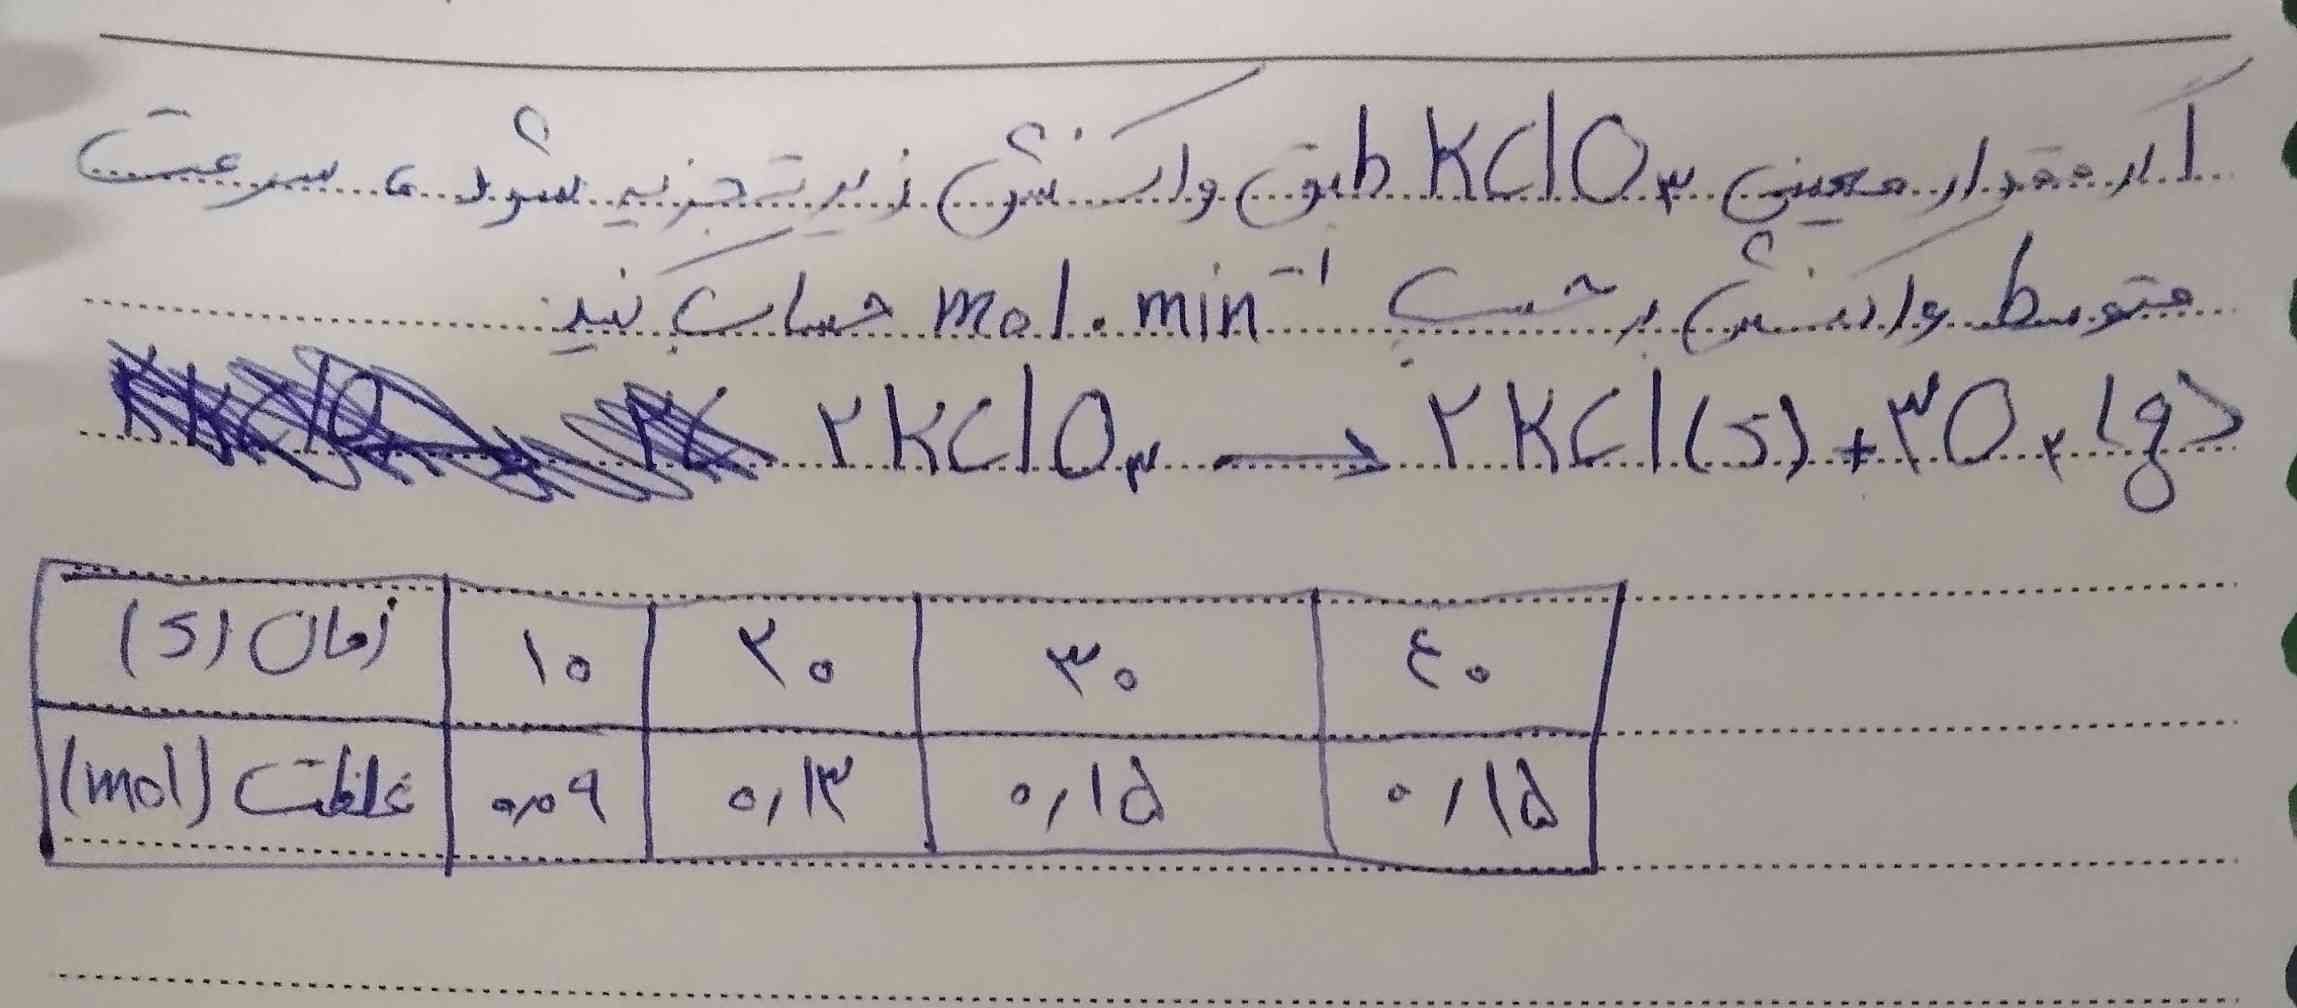 اگر مقدار معینی KClO۳ طبق واکنش زیر تجزیه شود، سرعت
متوسط واکنش برحسب mol.min⁻¹ حساب کنید
۲KClO۳ → ۲KCl(s) + ۳O۲(g)
زمان (s) ۱۰ ۲۰ ۳۰ ٤۰
غلظت (mol) ۰,۰۹ ۰,۱۳ ۰,۱۵ ۰,۱۵